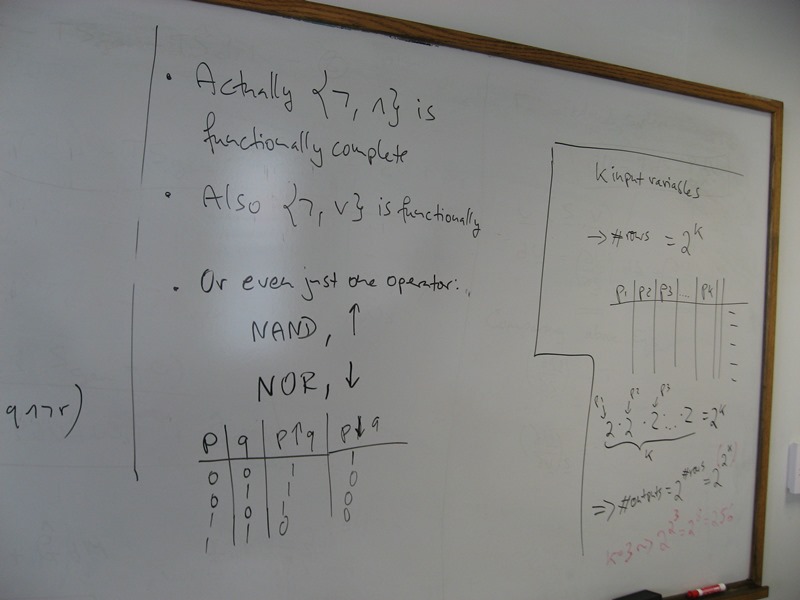 q ∧ ¬r)
• Actually {¬, ∧} is
functionally complete
• Also {¬, ∨} is functionally
• Or even just one operator:
NAND, ↑
NOR, ↓
p | q | p↑q | p↓q
0 | 0 | 1 | 1
0 | 1 | 1 | 0
1 | 0 | 1 | 0
1 | 1 | 0 | 0
K input variables
→ #rows = 2^k
p1 | p2 | p3 | ... | pk
p1 p2 p3
2 · 2 · 2 ... · 2 = 2^k
k
⇒ #outputs = 2^#rows = 2^(2^k)
k=3 ⇒ 2^2^3 = 2^8 = 256